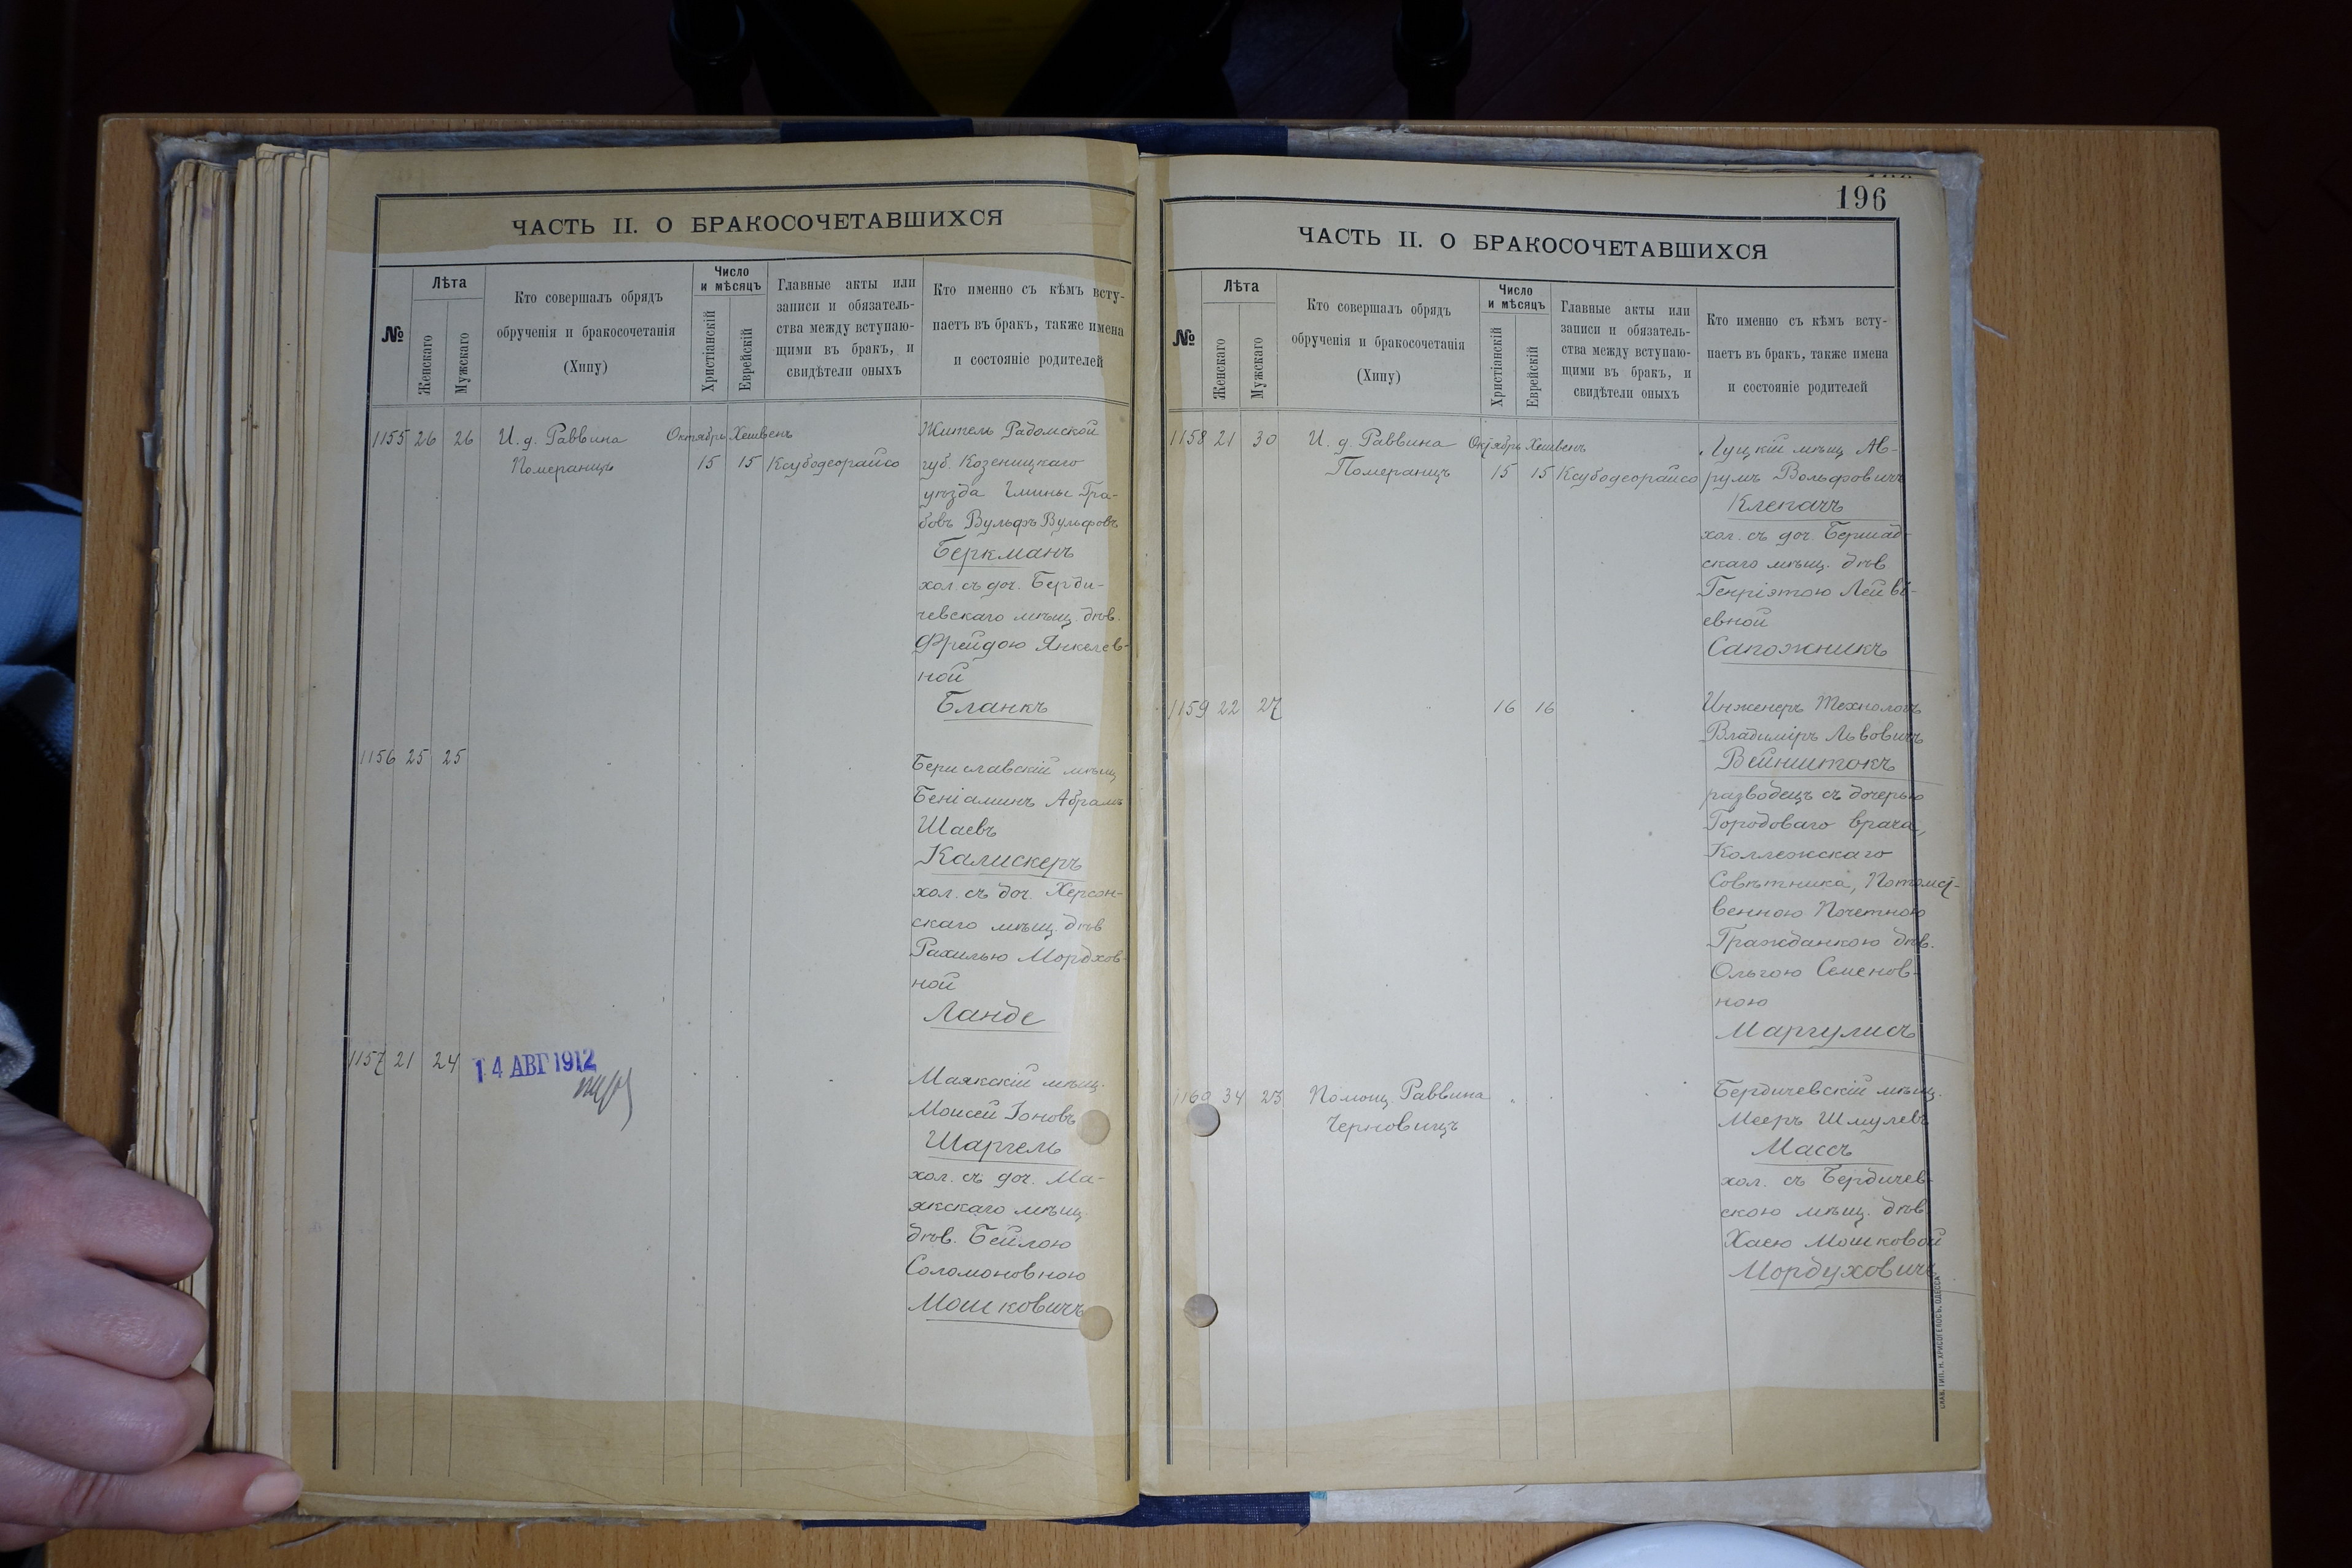 ЧАСТЬ II. О БРАКОСОЧЕТАВШИХСЯ
№
Лѣта
Женскаго
Мужскаго
Кто совершалъ обрядъ
обрученія и бракосочетанія
(Хипу)
Число
и мѣсяцъ
Христіанскій
Еврейскій
Главные акты или
записи и обязатель-
ства между вступаю-
щими въ бракъ, и
свидѣтели оныхъ
Кто именно съ кѣмъ всту-
паетъ въ бракъ, также имена
и состояніе родителей
1155 26 26 И. д. Раввина Октябрь Хешвенъ
Померанцъ 15 15 Ксубодеорайсо
Житель Радомской
губ. Козеницкаго
уѣзда Гмины Гра-
бовъ Вульфъ Вульфовъ
Беркманъ
хол. съ доч. Берди-
чевскаго мѣщ. дѣв.
Фрейдою Янкелев-
ной
Бланкъ
1156 25 25
Бериславскій мѣщ
Беніаминъ Абрамъ
Шаевъ
Калискеръ
хол. съ доч. Херсон-
скаго мѣщ. дѣв
Рахилью Мордхов-
ной
Ланде
1157 21 24
14 АВГ 1912
Маякскій мѣщ.
Моисей Іоновъ
Шаргель
хол. съ доч. Ма-
якскаго мѣщ.
дѣв. Бейлою
Соломоновною
Мошковичъ
196
ЧАСТЬ II. О БРАКОСОЧЕТАВШИХСЯ
№
Лѣта
Женскаго
Мужскаго
Кто совершалъ обрядъ
обрученія и бракосочетанія
(Хипу)
Число
и мѣсяцъ
Христіанскій
Еврейскій
Главные акты или
записи и обязатель-
ства между вступаю-
щими въ бракъ, и
свидѣтели оныхъ
Кто именно съ кѣмъ всту-
паетъ въ бракъ, также имена
и состояніе родителей
1158 21 30 И. д. Раввина Октябрь Хешвенъ
Померанцъ 15 15 Ксубодеорайсо
Луцкій мѣщ Ав-
румъ Вольфовичъ
Клепачъ
хол. съ доч. Бершад-
скаго мѣщ. дѣв
Генріэтою Лейбъ-
евной
Сапожникъ
1159 22 27 16 16
Инженеръ Технологъ
Владиміръ Львовичъ
Вейнштокъ
разводецъ съ дочерью
Городоваго врача,
Коллежскаго
Совѣтника, Потомст-
венною Почетною
Гражданкою дѣв.
Ольгою Семенов-
ною
Маргулисъ
1160 34 23 Помощ. Раввина
Черновицъ
Бердичевскій мѣщ.
Мееръ Шмулевъ
Массъ
хол. съ Бердичев-
скою мѣщ. дѣв
Хаею Мошковой
Мордуховичъ
СКЛАД. ТИП. Н. ХРИСОГЕЛОСЪ, ОДЕССА.